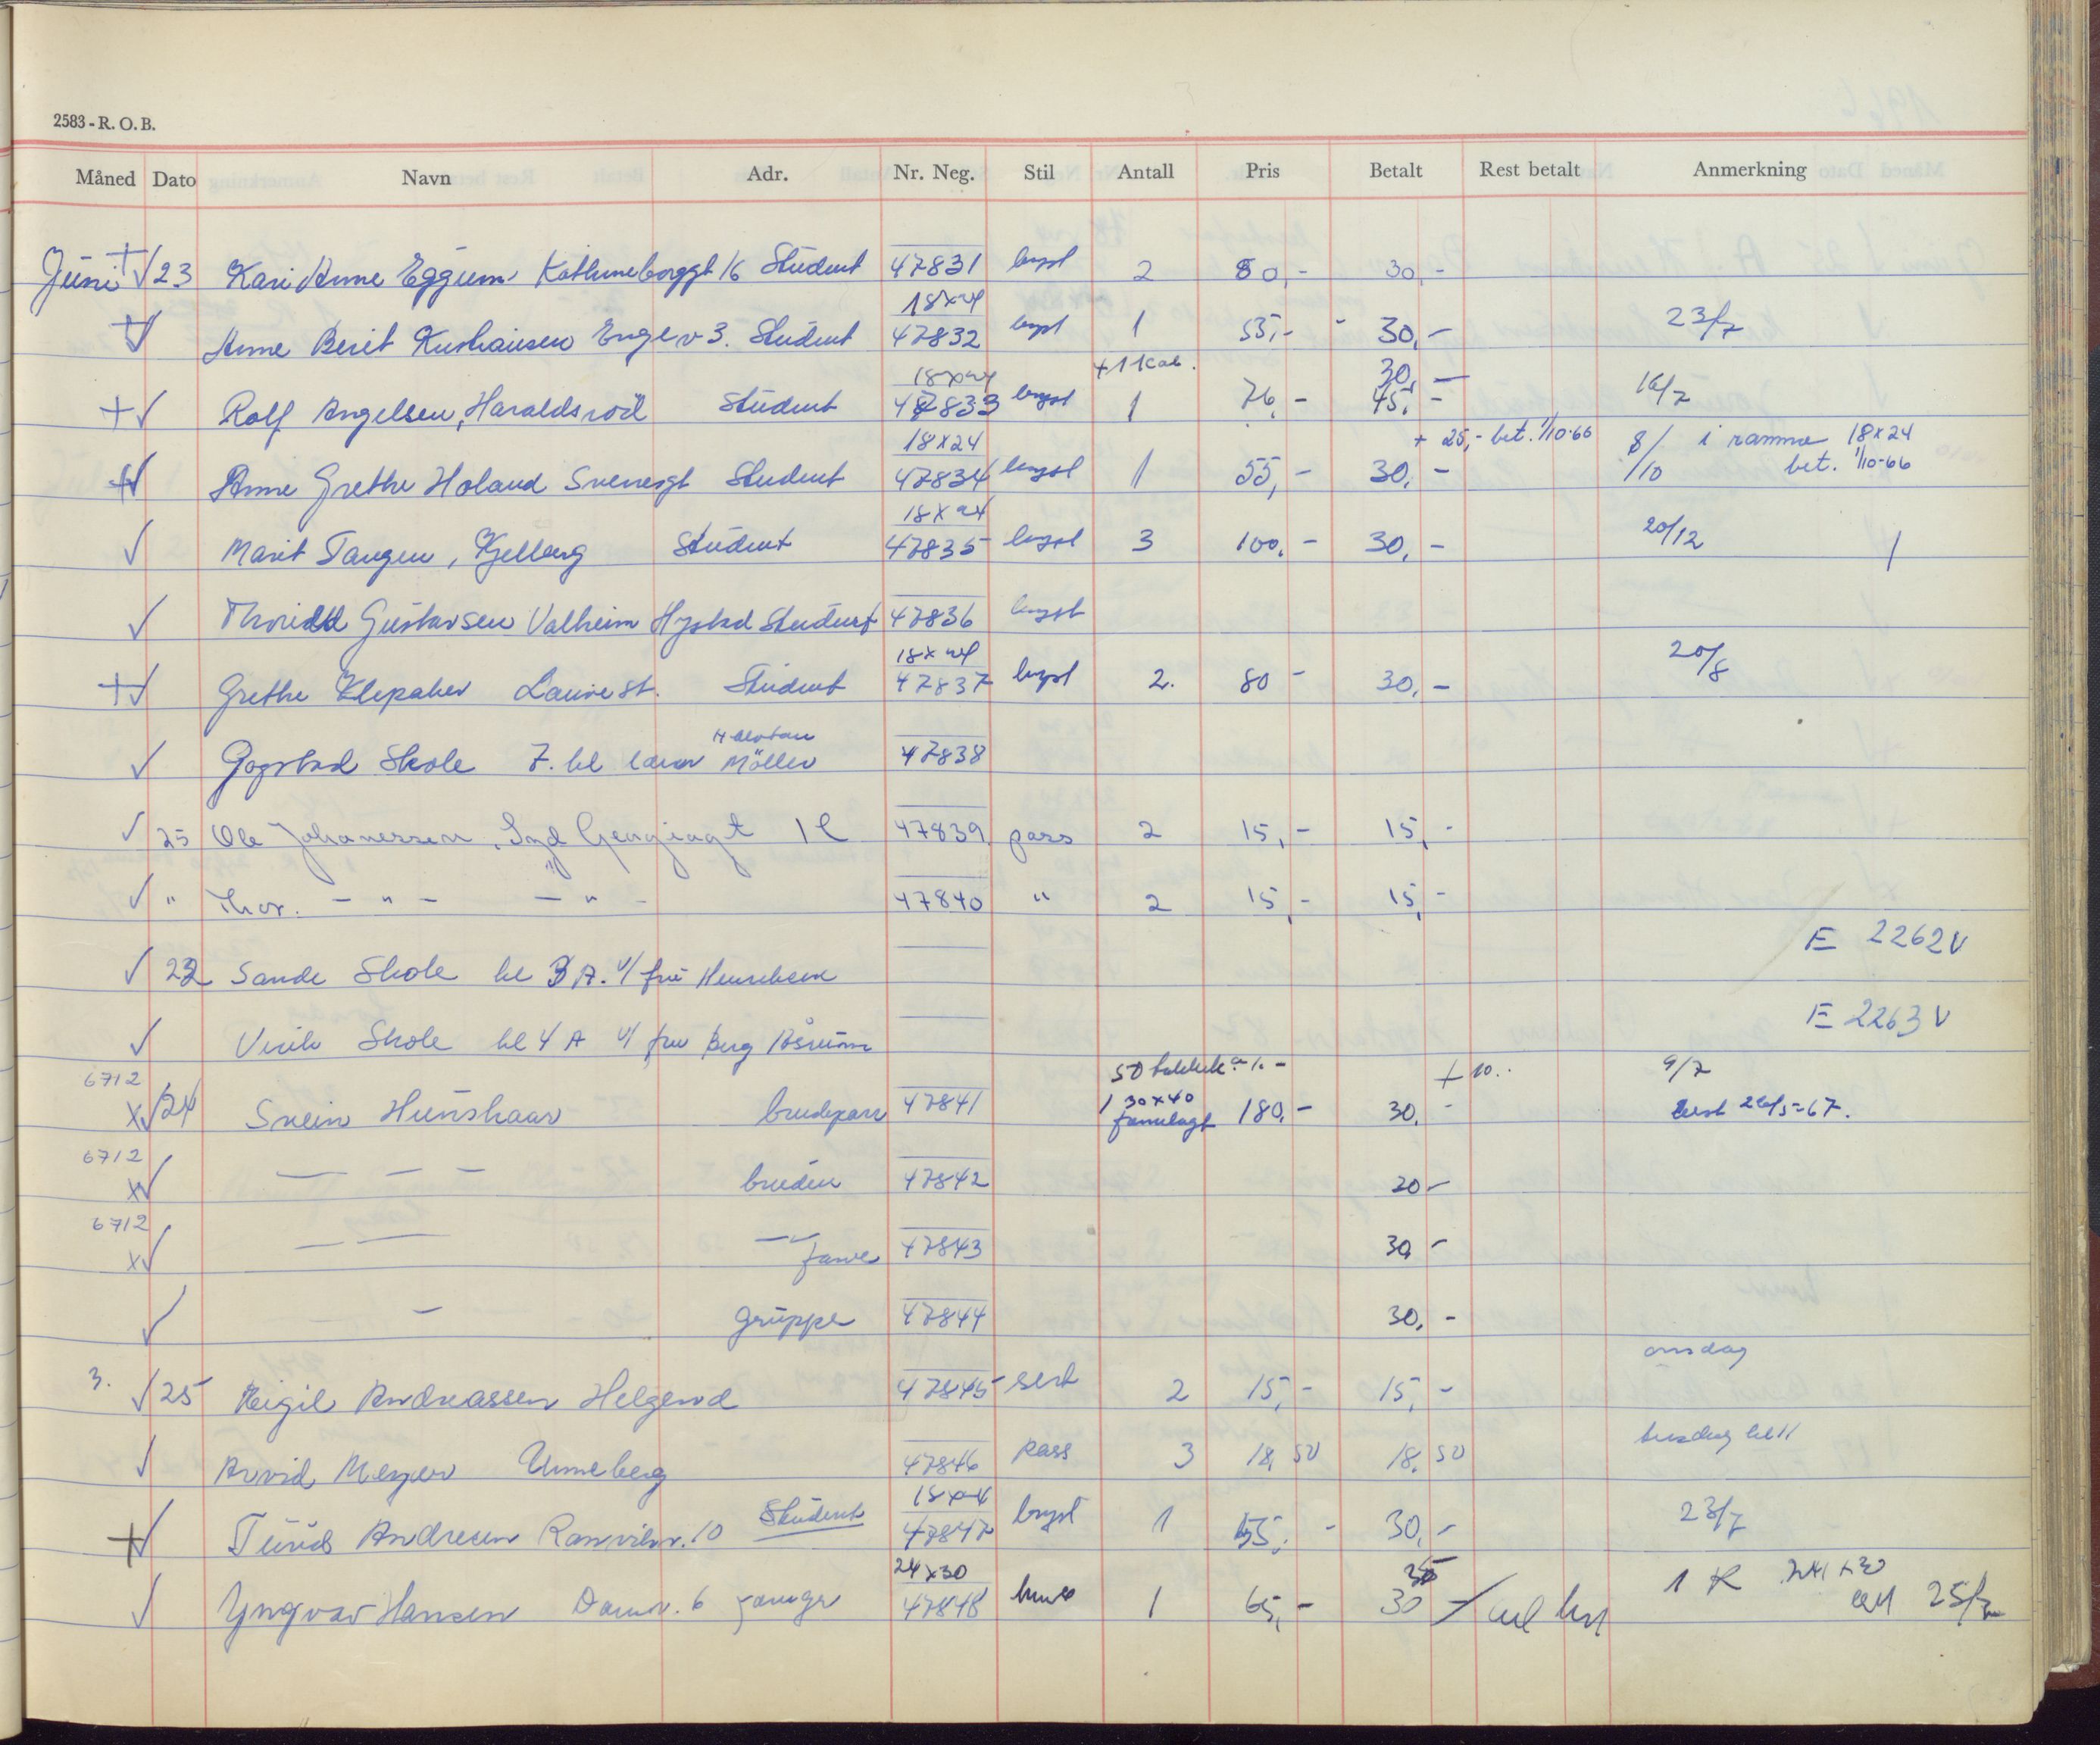 2583 - R. O. B.
Måned Dato Navn Adr. Nr. Neg. Stil Antall Pris Betalt Rest betalt Anmerkning
Juni + √ 23 Kari Anne Eggum, 16 Student 47831 bryst 2 80,- 30,-
18x24
+ √ Anne Berit Engev 3. Student 47832 bryst 1 55,- 30,- 23/7
18x24 + 1 kab. 30,-
+ √ Rolf Angelsen, Haraldsrød Student 47833 bryst 1 76,- 45,- 16/7
18x24 + 25,- bet. 1/10-66 8/10 i ramme 18x24
+ √ Anne Grethe Holand Svenesgt Student 47834 bryst 1 55,- 30,- bet. 1/10-66
18x24
√ Marit Tangen, Kjelberg Student 47835 bryst 3 100,- 30,- 20/12
√ Gustavsen Valheim Hystad Student 47836 bryst
18x24
+ √ Grethe Klepaker Student 47837 bryst 2. 80 - 30,- 20/8
√ Gogstad Skole 7. kl lærer Möller 47838
√ 25 Ole Johanessen, Syd Georgiagt 1 C 47839 pass 2 15,- 15,-
√ " Thor. - " - - " - 47840 " 2 15,- 15,-
E 2262 V
√ 22 Sande Skole kl 3 A. v/ fru Henriksen
E 2263 V
√ Skole kl 4 A v/ fru Berg
6712 50 takkek a 1.- + 10.. 9/7
x√ 24 Svein Hunskaar brudepar 47841 1 30x40 180,- 30,- 26/5-67.
6712
x√ — — — bruden 47842 20 -
6712
x√ — — — " — farve 47843 30 -
√ — gruppe 47844 30,-
3. √ 25 Eigil Andreassen Helgerød 47845 sert 2 15,- 15,- onsdag
√ Arvid Meyer Unneberg 47846 pass 3 18,50 18,50 tirsdag kl 11
18x24
+ √ Andresen 10 Student 47847 bryst 1 55,- 30,- 23/7
24x30 35
√ Yngvar Hansen 6 47848 1 65,- 30 - 1 K 24x30
25/7